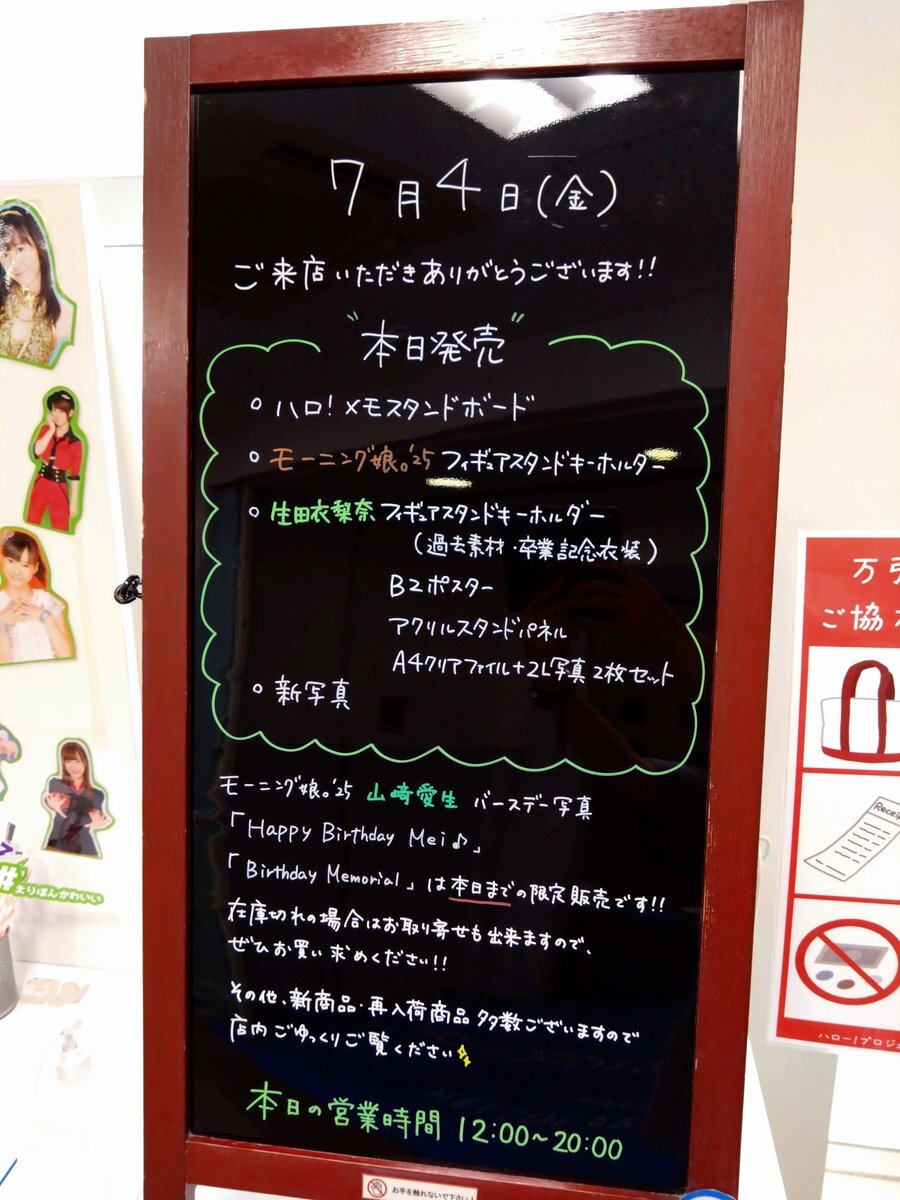 7月4日(金)
ご来店いただきありがとうございます!!
"本日発売"
○ ハロ!メモスタンドボード
○ モーニング娘。'25 フィギュアスタンドキーホルダー
○ 生田衣梨奈 フィギュアスタンドキーホルダー
(過去素材・卒業記念衣装)
B2ポスター
アクリルスタンドパネル
A4クリアファイル+2L写真2枚セット
○ 新写真
モーニング娘。'25 山﨑愛生 バースデー写真
「Happy Birthday Mei♪」
「Birthday Memorial」は本日までの限定販売です!!
在庫切れの場合はお取り寄せも出来ますので、
ぜひお買い求めください!!
その他、新商品・再入荷商品多数ございますので
店内ごゆっくりご覧ください
本日の営業時間 12:00~20:00
お手を触れないで下さい!
#えりぽんかわいい
万引
ご協
Receip
ハロー!プロジェ